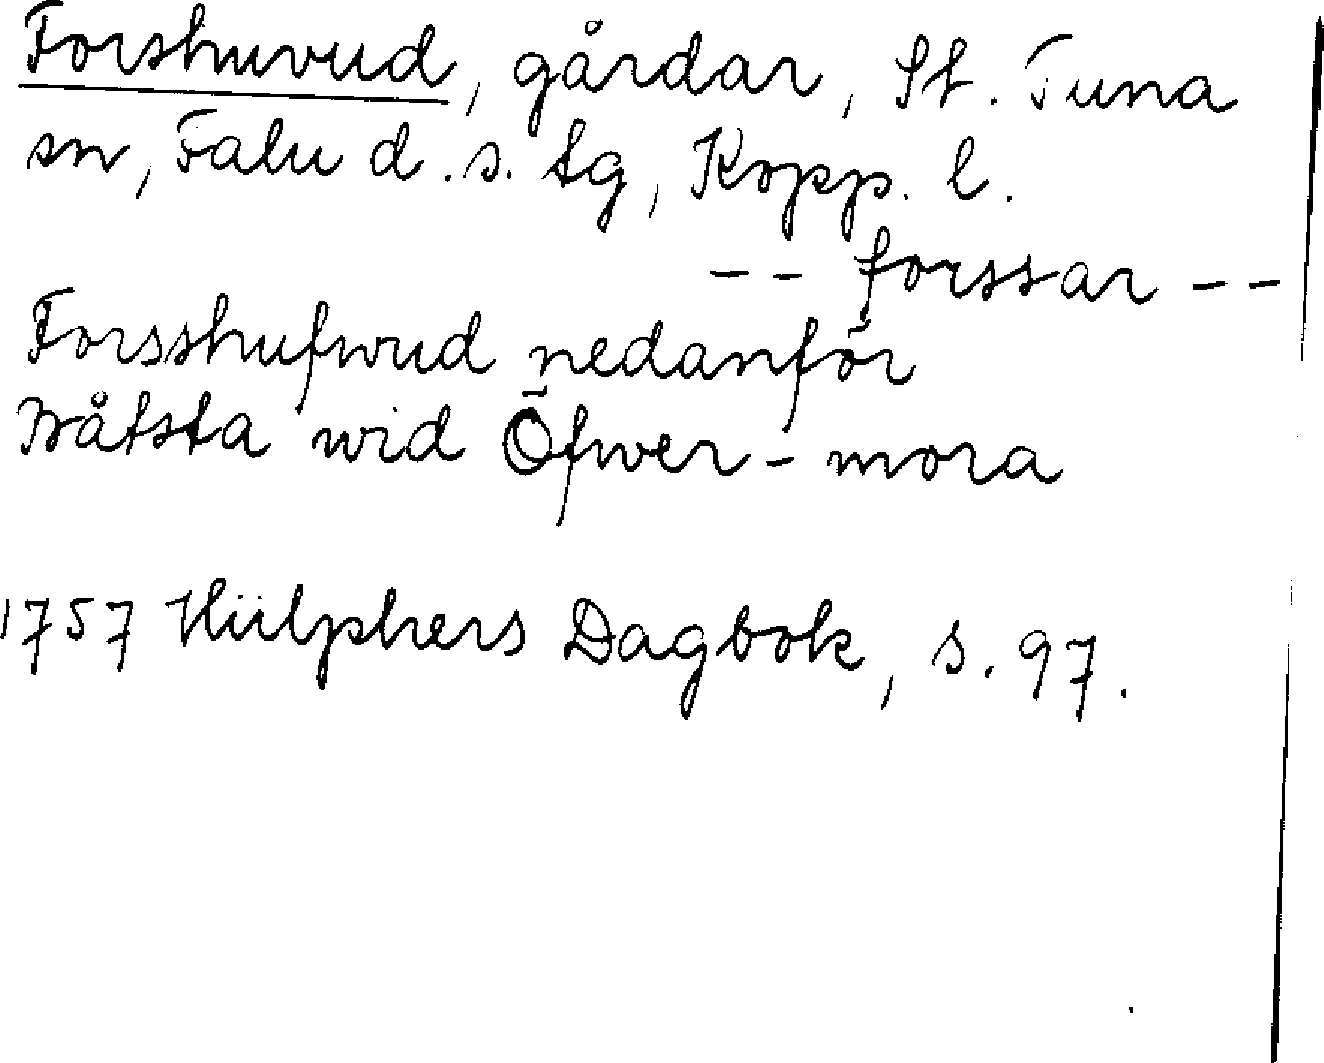 Forshuvud, gårdar, St. Tuna
sn, Falu d.s. tg, Kopp. l.
-- forssar --
Forsshufwud nedanför
Båtsta wid Öfwer-mora
1757 Hülphers Dagbok, s. 97.